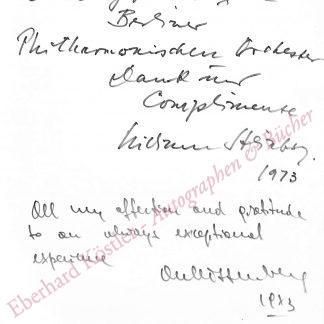 Berliner
Philharmonischen Orchester
Dank und
Complimente
1973
All my affection and gratitude
to an always exceptional
experience
1983
Eberhard Köstler - Autographen & Bücher